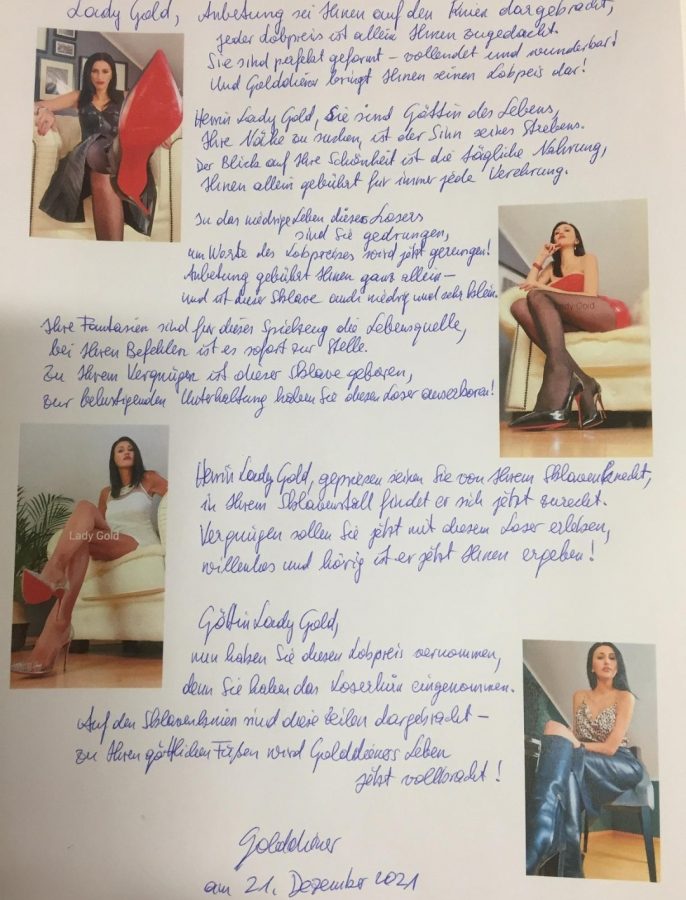 Lady Gold, Anbetung sei Ihnen auf den Knien dargebracht,
jeder Lobpreis ist allein Ihnen zugedacht.
Sie sind perfekt geformt – vollendet und wunderbar!
Und Golddiener bringt Ihnen seinen Lobpreis dar!
Herrin Lady Gold, Sie sind Göttin des Lebens,
Ihre Nähe zu suchen, ist der Sinn seines Strebens.
Der Blick auf Ihre Schönheit ist die tägliche Nahrung,
Ihnen allein gebührt für immer jede Verehrung.
In das niedrige Leben dieses Losers
sind Sie gedrungen,
um Worte des Lobpreises wird jetzt gerungen!
Anbetung gebührt Ihnen ganz allein –
und ist dieser Sklave auch niedrig und sehr klein.
Lady Gold
Ihre Fantasien sind für dieses Spielzeug die Lebensquelle,
bei Ihren Befehlen ist es sofort zur Stelle.
Zu Ihrem Vergnügen ist dieser Sklave geboren,
zur belustigenden Unterhaltung haben Sie diesen Loser auserkoren!
Herrin Lady Gold, gepriesen seien Sie von Ihrem Sklavenknecht,
in Ihrem Sklavenstall findet er sich jetzt zurecht.
Lady Gold
Vergnügen sollen Sie jetzt mit diesem Loser erleben,
willenlos und hörig ist er jetzt Ihnen ergeben!
Göttin Lady Gold,
nun haben Sie diesen Lobpreis vernommen,
denn Sie haben das Loserhirn eingenommen.
Auf den Sklavenknien sind diese Zeilen dargebracht –
zu Ihren göttlichen Füßen wird Golddieners Leben
jetzt vollbracht!
Golddiener
am 21. Dezember 2021